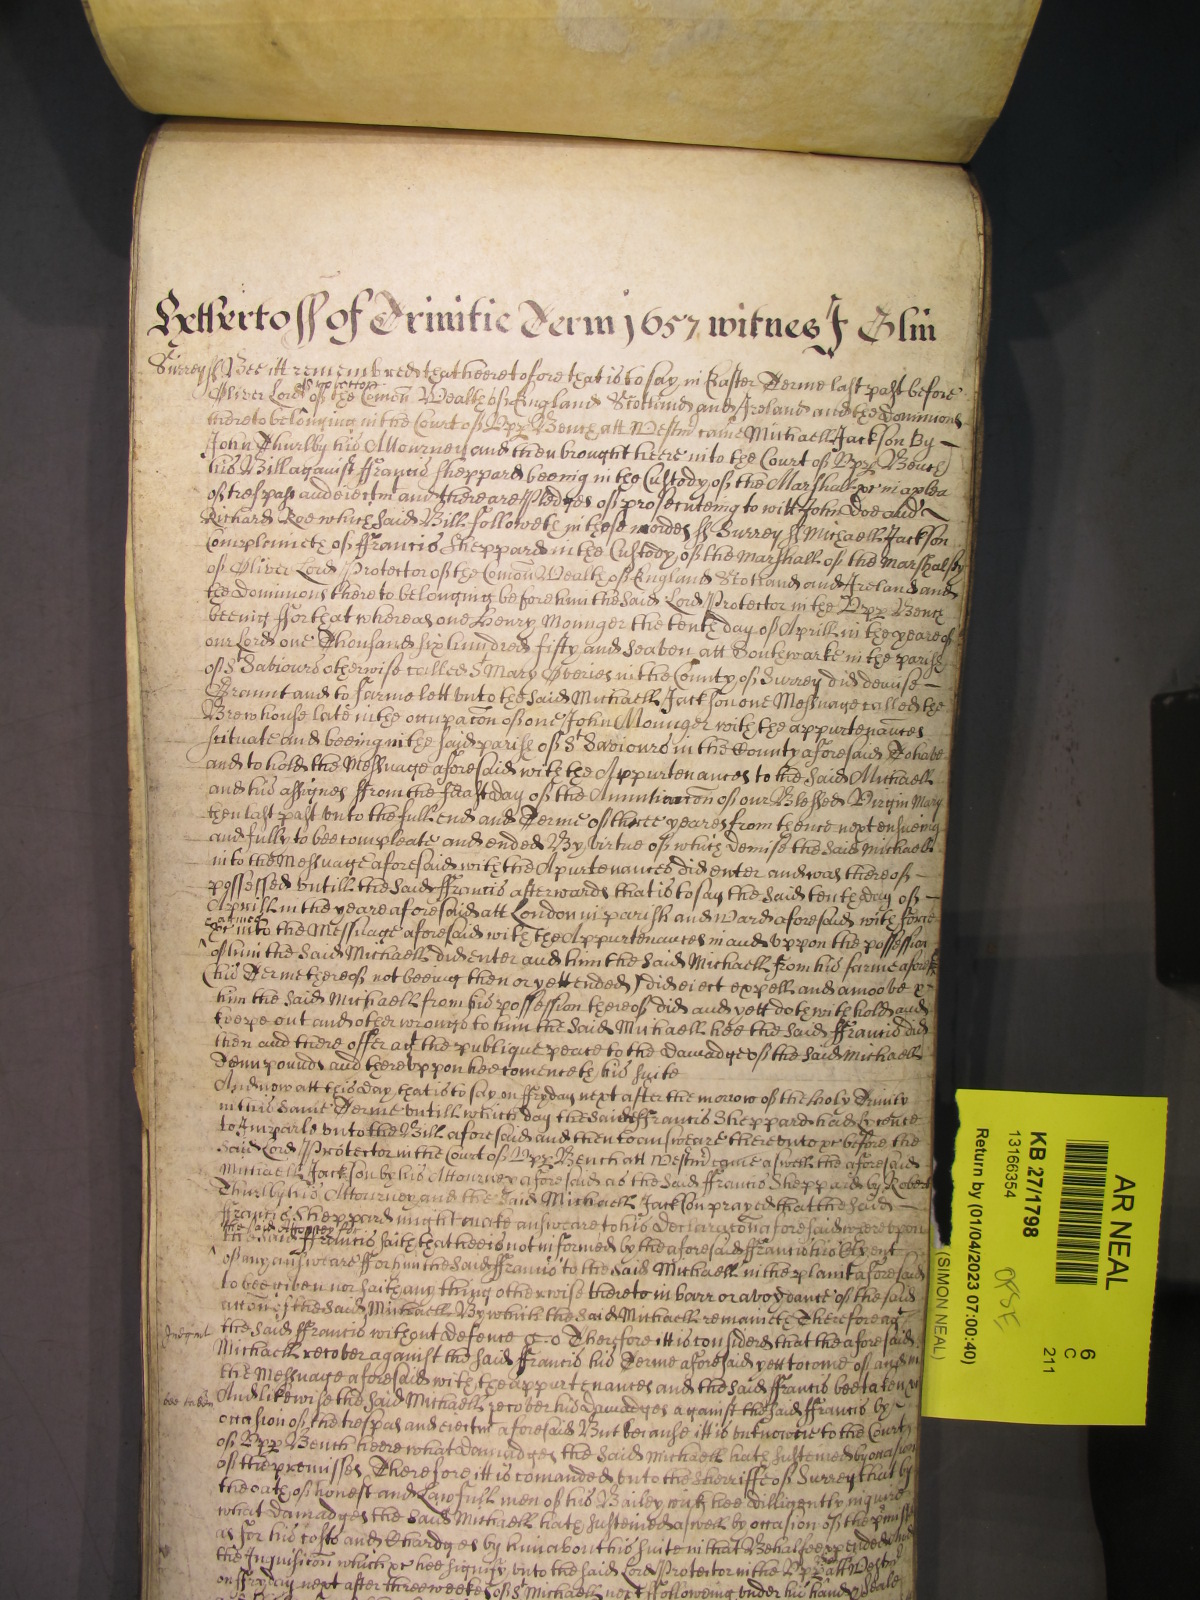 Hetherto ss of Trinitie Terme 1657 witnes J Glin
Surrey ss Bee itt remembred that heeretofore that is to say in Easter Terme last past before
Oliver Lord Protector of the Comon Wealth of England Scotland and Ireland and the dominions
thereto belonging in the Court of Upp Bench att Westm came Michaell Jackson By
John Thurlby his Attourney and then brought heere into the Court of Upp Bench
his Bill against ffrancis Sheppard beeing in the Custody of the Marshall &c in a plea
of trespass and eiectm and there are Pledges of prosecuteing to witt John Doe and
Richard Roe which said Bill followeth in these wordes ss Surrey ss Michaell Jackson
Complaineth of ffrancis Sheppard in the Custody of the Marshall of the Marshalsey
of Oliver Lord Protector of the Comon Wealth of England Scotland and Ireland and
the Dominions thereto belonging before him the said Lord Protector in the Upp Bench
beeing ffor that whereas one Henry Mounger the tenth day of Aprill in the yeare of
our Lord one Thousand six hundred fifty and seaven att Southwarke in the parish
of St Saviours otherwise called St Mary Overies in the County of Surrey did demise
Graunt and to farme lett unto the said Michaell Jackson one Messuage called the
Brewhouse late in the occupacon of one John Mounger with the appurtenances
scituate and beeing in the said parish of St Saviours in the County aforesaid To have
and to hold the Messuage aforesaid with the Appurtenances to the said Michaell
and his assignes ffrom the feast day of the Annunciacon of our Blessed Virgin Mary
then last past unto the full end and Terme of three yeares from thence next ensueing
and fully to bee compleate and ended By virtue of which demise the said Michaell
into the Messuage aforesaid with the Apurtenances did enter and was thereof
possessed untill the said ffrancis afterwards that is to say the said tenth day of
Aprill in the yeare aforesaid att London in parish and Ward aforesaid with force
& armes &c into the Messuage aforesaid with the Appurtenances in and uppon the possession
of him the said Michaell did enter and him the said Michaell from his farme aforesd
(his Terme thereof not beeing then or yett ended) did eiect expell and amoove &
him the said Michaell from his possession thereof did and yett doth withhold and
keepe out and other wrongs to him the said Michaell hee the said ffrancis did
then and there offer agt the publique peace to the damadge of the said Michaell
Tenn pounds and thereuppon hee comenceth his suite
And now att this day that is to say on ffryday next after the morrow of the Holy Trinity
in this same Terme untill which day the said ffrancis Sheppard had licence
to Imparle unto the Bill aforesaid and then to answeare thereunto &c before the
said Lord Protector in the Court of Upp Bench att Westm came aswell the aforesaid
Michaell Jackson by his Attourney aforesaid as the said ffrancis Sheppard by Robert
Thurlby his Attourney and the said Michaell Jackson prayed that the said
ffrancis Sheppard might make answeare to his Declaracon aforesaid whereupon
the said Attourney of the said ffrancis saith that hee is not informed by the aforesaid ffrancis his Clyent
of any answeare ffor him the said ffrancis to the said Michaell in the plaint aforesaid
to bee given nor saith any thing otherwise thereto in barr or avoydance of the said
accon of the said Michaell By which the said Michaell remaineth Therefore agt
Judgmt the said ffrancis without defence &c Therefore itt is considered that the aforesaid
Michaell recover against the said ffrancis his Terme aforesaid yett to come of and in
the Messuage aforesaid with the appurtenances and the said ffrancis bee taken
bee taken And likewise the said Michaell recover his damadges against the said ffrancis by
occasion of the trespas and eiectm aforesaid But because itt is unknowne to the Court
of Upp Bench heere what Damadges the said Michaell hath susteined by occasion
of the premisses Therefore itt is comanded unto the Sherriffe of Surrey that by
the oath of honest and Lawfull men of his Bailywick hee dilligently inquire
what damadges the said Michaell hath susteined aswell by occasion of the premisses
as for his costs and Chardges by him about his suite in that Behalfe expended and
the Inquisicon which &c hee signify unto the said Lord Protector in the Upp att Westm
on ffryday next after three weekes of St Michaell next following under his hand & seale
AR NEAL
KB 27/1798
13166354
Return by (01/04/2023 07:00:40)
(SIMON NEAL)
6
C
211